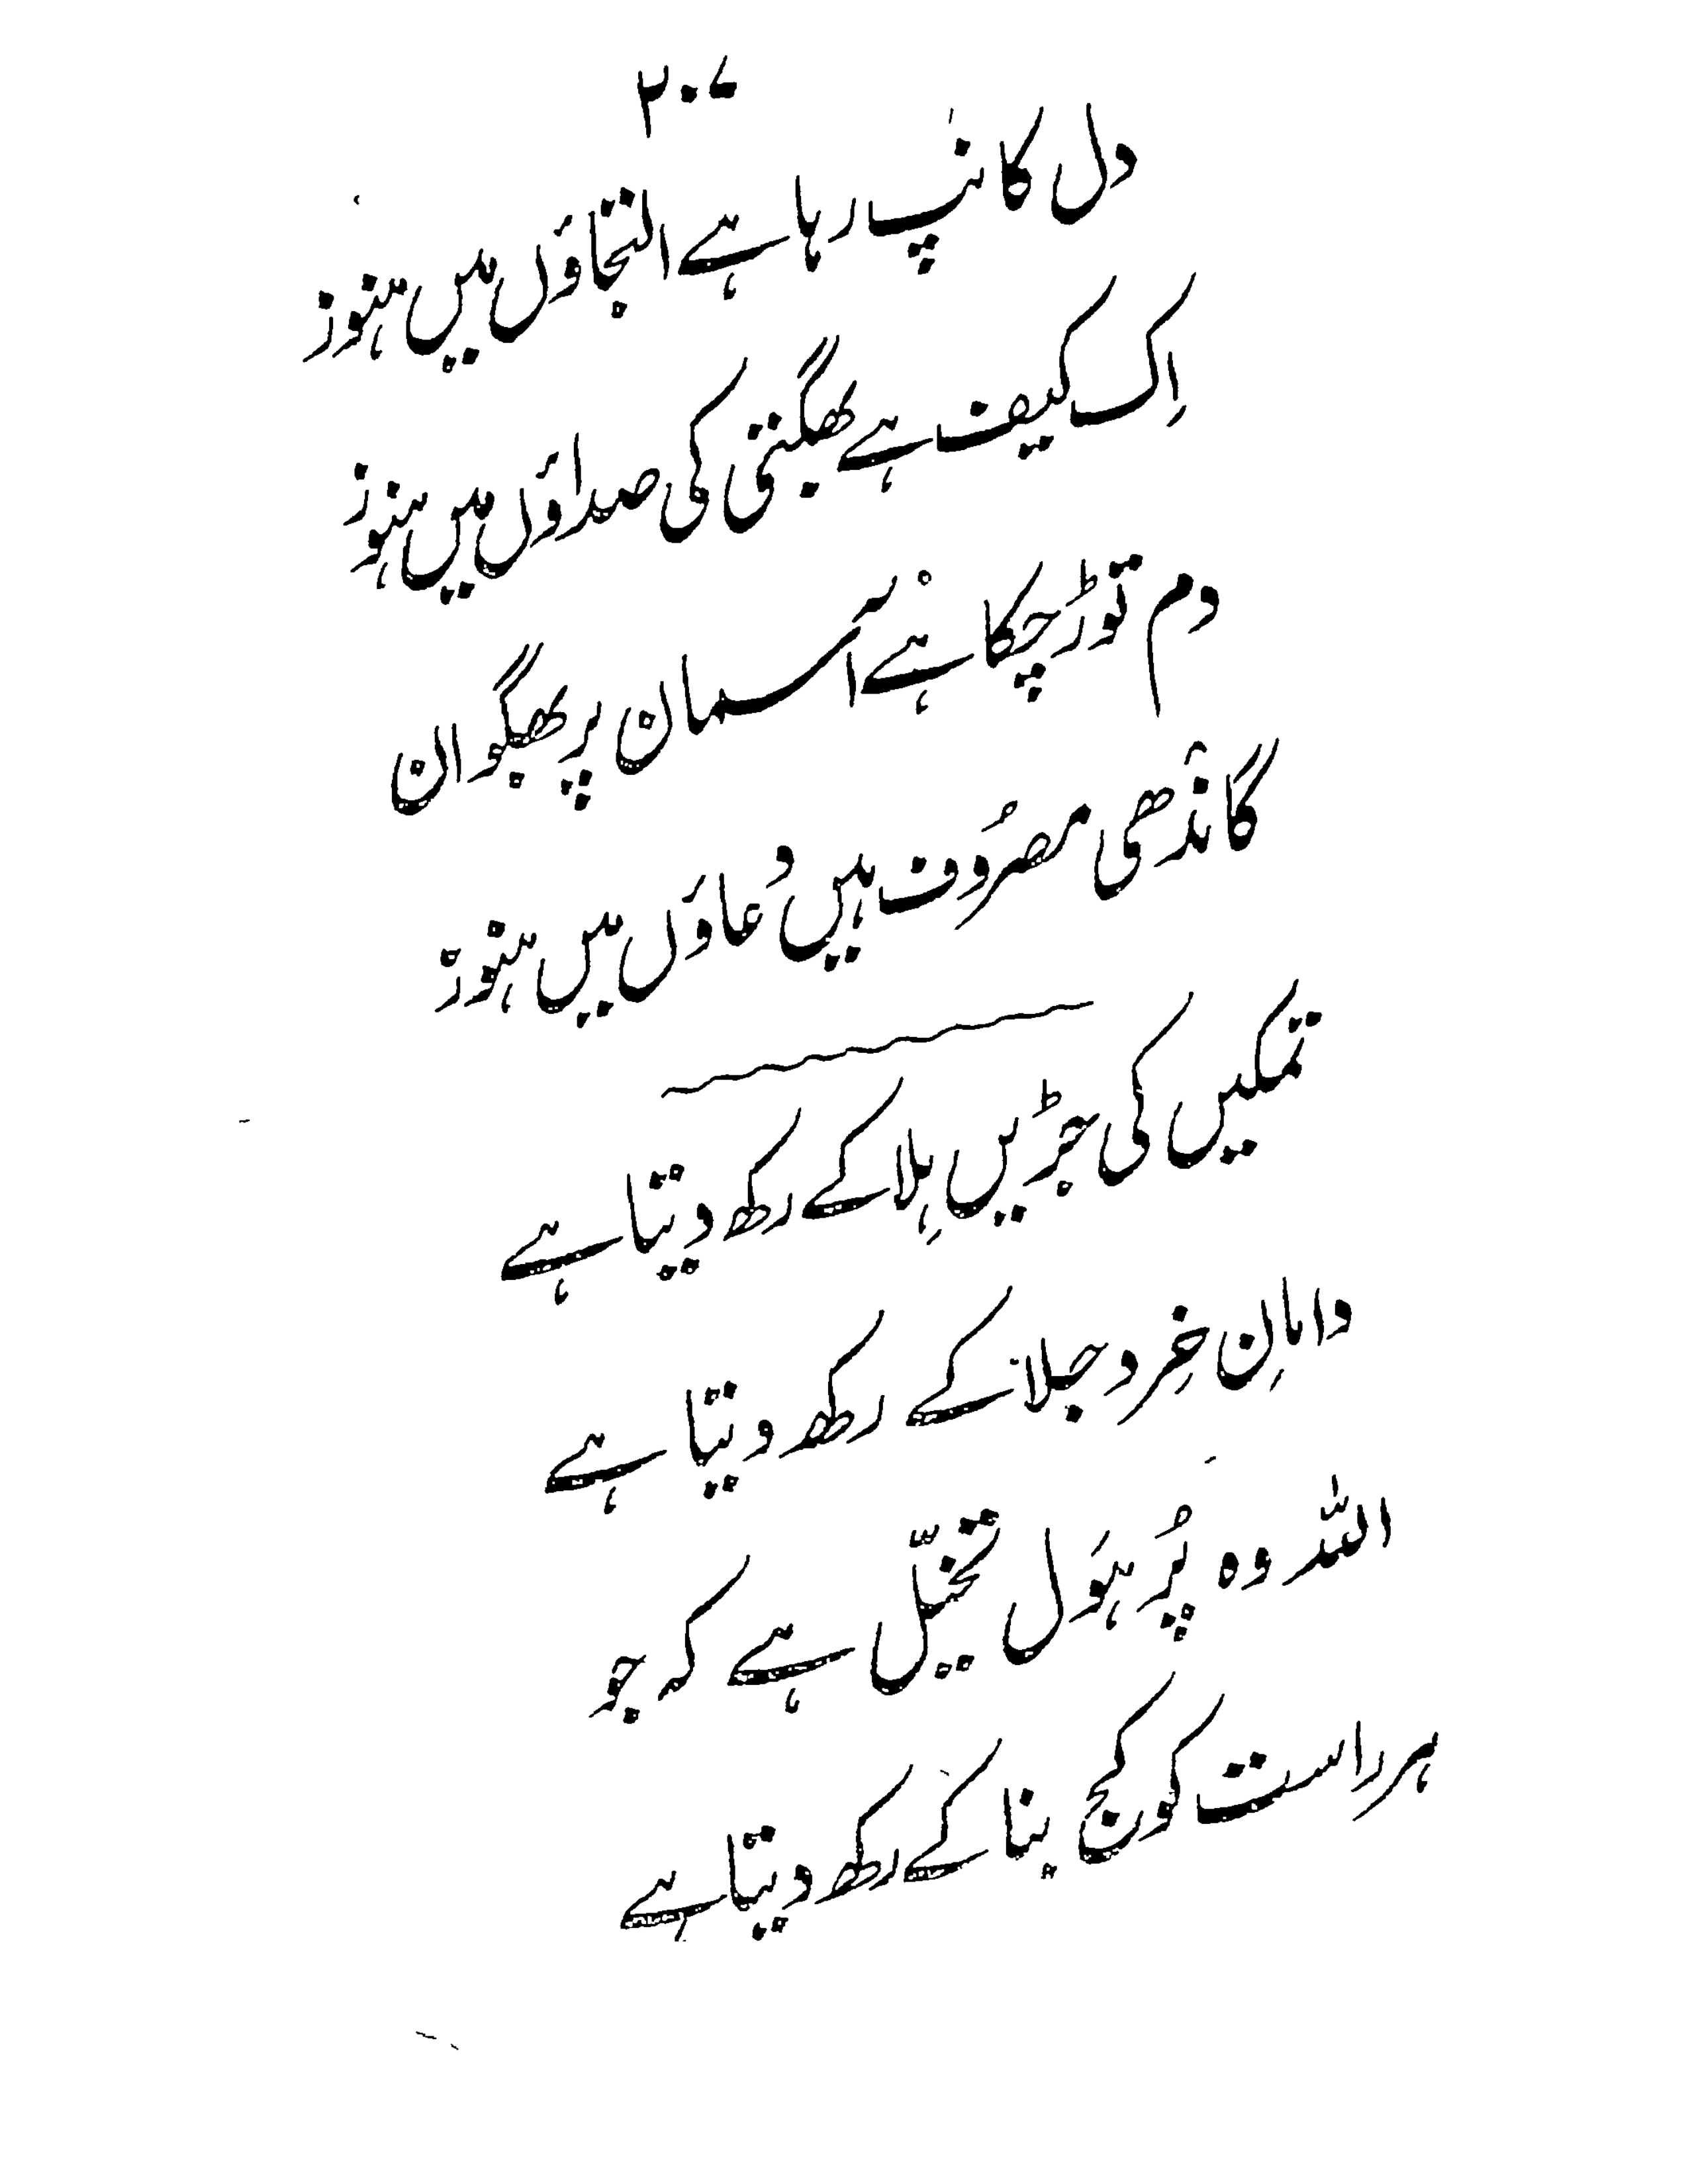 ۲۰۷
دل کانپ رہا ہے التجاؤں میں ہنوز
اِک کیف ہے بھگتی کی صداؤں میں ہنوز
دم توڑ چکا ہے آسمان پر بھگوان
گاندھی مصرُوف ہیں دُعاؤں میں ہنوز
تمکیں کی جڑیں ہِلا کے رکھ دیتا ہے
دامانِ خِرد جلا کے رکھ دیتا ہے
اللہ وہ پُر ہَول تخیّل ہے کہ جو
ہر راست کو کج بنا کے رکھ دیتا ہے